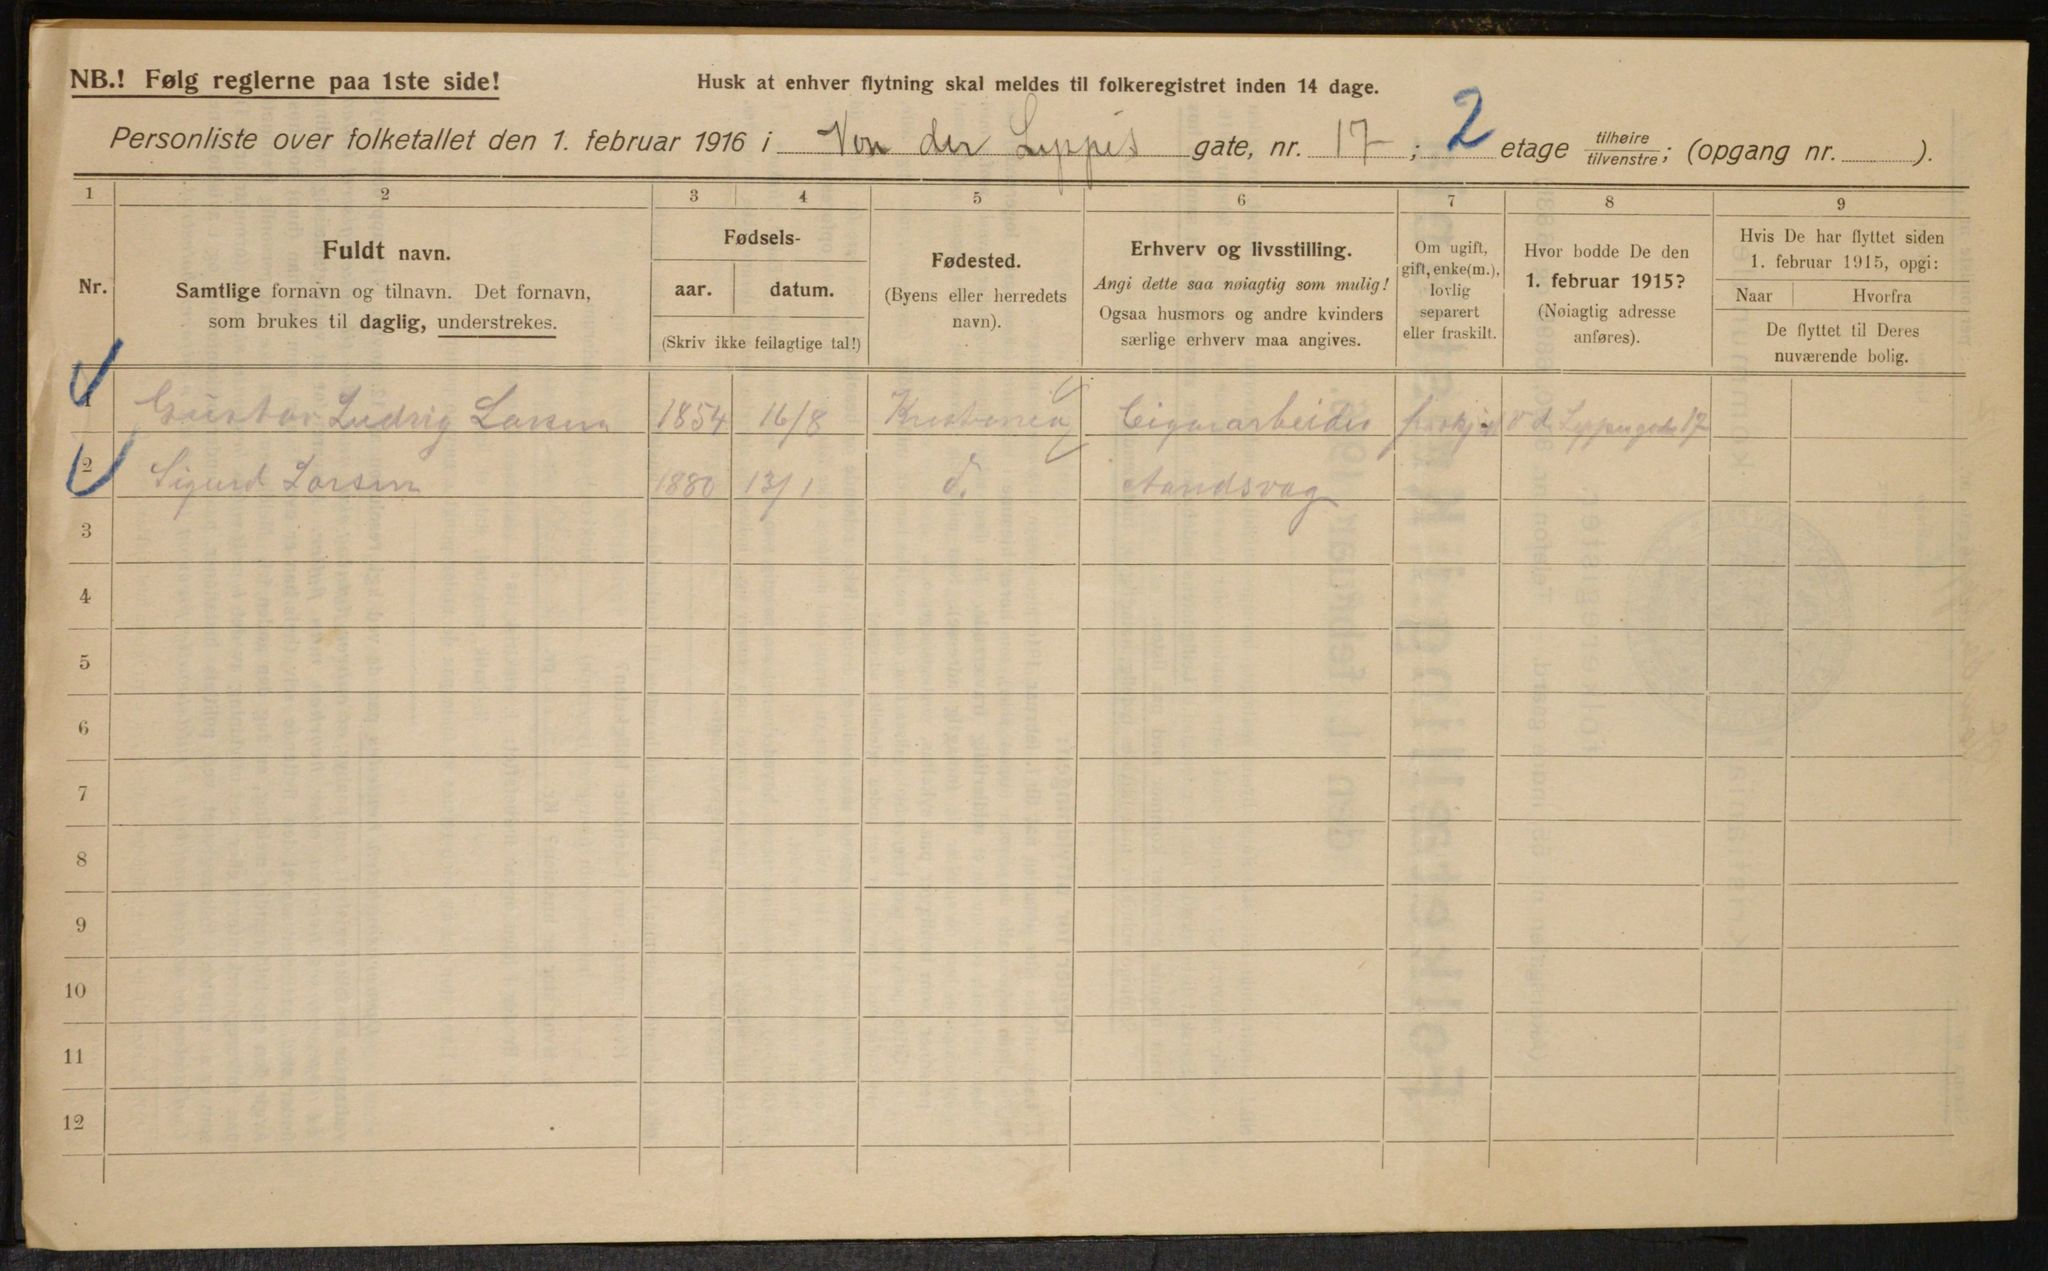 NB.! Følg reglerne paa 1ste side!
Husk at enhver flytning skal meldes til folkeregistret inden 14 dage.
Personliste over folketallet den 1. februar 1916 i Von der Lippes gate, nr. 17 ; 2 etage tilhøire/tilvenstre; (opgang nr. ).
1 2 3 4 5 6 7 8 9
Nr.
Fuldt navn.
Samtlige fornavn og tilnavn. Det fornavn,
som brukes til daglig, understrekes.
Fødsels-
aar. datum.
(Skriv ikke feilagtige tal!)
Fødested.
(Byens eller herredets
navn).
Erhverv og livsstilling.
Angi dette saa nøiagtig som mulig!
Ogsaa husmors og andre kvinders
særlige erhverv maa angives.
Om ugift,
gift, enke(m.),
lovlig
separert
eller fraskilt.
Hvor bodde De den
1. februar 1915?
(Nøiagtig adresse
anføres).
Hvis De har flyttet siden
1. februar 1915, opgi:
Naar Hvorfra
De flyttet til Deres
nuværende bolig.
1 Gustav Ludvig Larsen 1854 16/8 Kristiania Cigararbeider v d Lippesgade 17
2 Sigurd Larsen 1880 13/1 d. Aandsvag
3
4
5
6
7
8
9
10
11
12